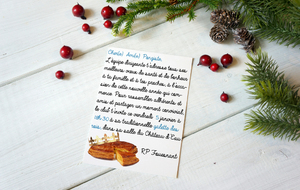 Cher(e) Ami(e) Pongiste,
L'équipe dirigeante t'adresse tous ses
meilleurs vœux de santé et de bonheur
à ta famille et à tes proches, à l'occa-
sion de cette nouvelle année qui com-
mence. Pour rassembler adhérents et
amis et partager un moment convivial,
le club t'invite ce vendredi 5 janvier à
18h30 à sa traditionnelle galette des
rois, dans sa salle du Château d'Eau
RP Foucenant